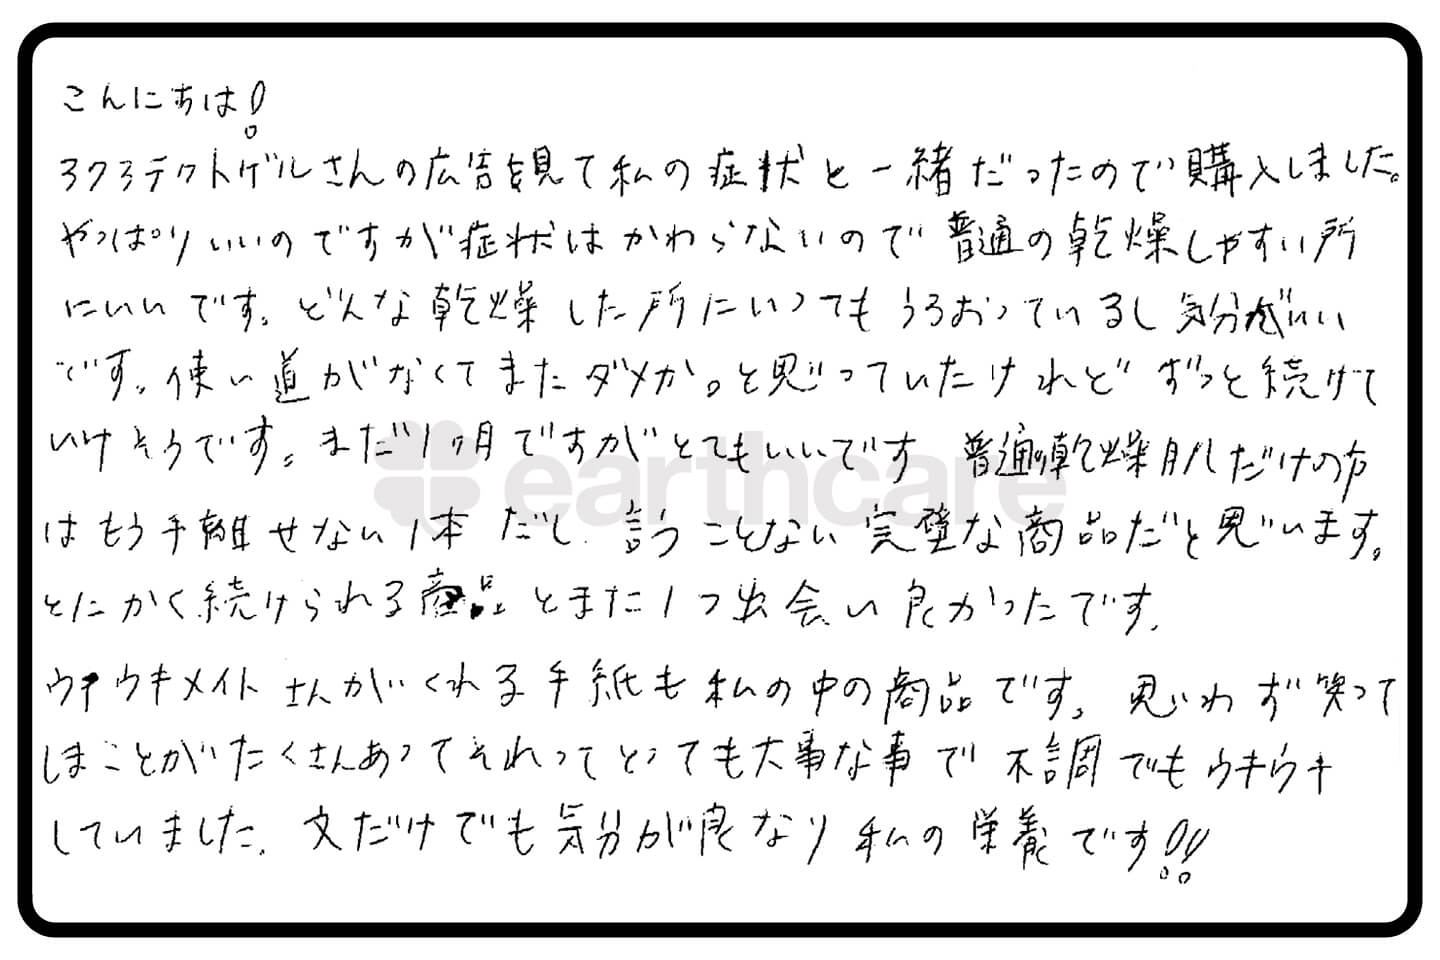 こんにちは!
ヨクヨテクトゲルさんの広告を見て私の症状と一緒だったので購入しました。
やっぱりいいのですが症状はかわらないので普通の乾燥しやすい所
にいいです。どんな乾燥した所にいってもうるおっているし気分がいい
です。使い道がなくてまたダメか。と思っていたけれどずっと続けて
いけそうです。まだ1ヶ月ですがとてもいいです 普通の乾燥肌だけの方
はもう手離せない1本だし 言うことない完璧な商品だと思います。
とにかく続けられる商品とまた1つ出会い良かったです。
ウキウキメイトさんがくれる手紙も私の中の商品です。思わず笑って
しまことがたくさんあってそれってとっても大事な事で不調でもウキウキ
していました。文だけでも気分が良なり私の栄養です!!
earthcare